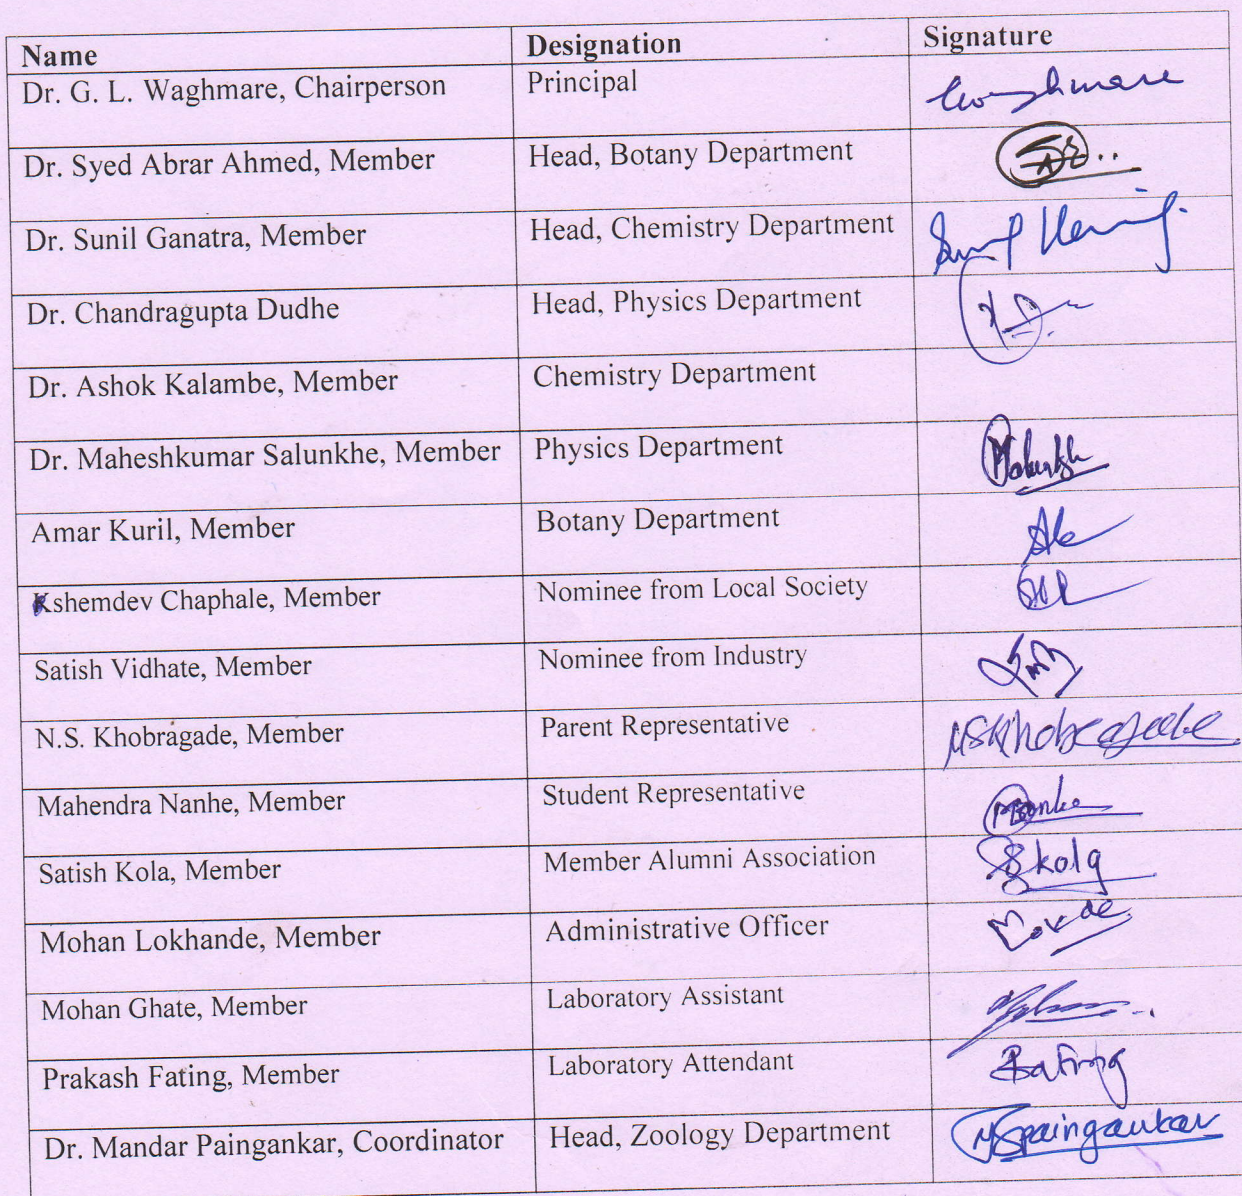 Name Designation Signature
Dr. G. L. Waghmare, Chairperson Principal Waghmare
Dr. Syed Abrar Ahmed, Member Head, Botany Department
Dr. Sunil Ganatra, Member Head, Chemistry Department
Dr. Chandragupta Dudhe Head, Physics Department
Dr. Ashok Kalambe, Member Chemistry Department
Dr. Maheshkumar Salunkhe, Member Physics Department
Amar Kuril, Member Botany Department
Kshemdev Chaphale, Member Nominee from Local Society
Satish Vidhate, Member Nominee from Industry
N.S. Khobragade, Member Parent Representative NSKhobragade
Mahendra Nanhe, Member Student Representative
Satish Kola, Member Member Alumni Association Skola
Mohan Lokhande, Member Administrative Officer
Mohan Ghate, Member Laboratory Assistant
Prakash Fating, Member Laboratory Attendant
Dr. Mandar Paingankar, Coordinator Head, Zoology Department MSpaingankar